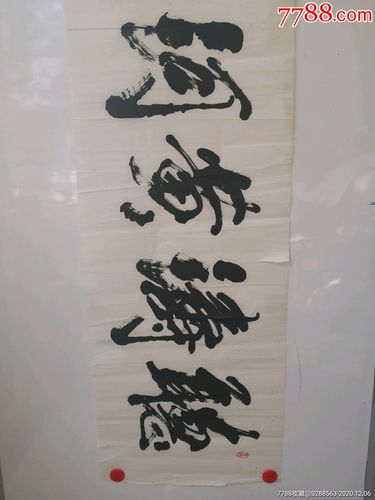 7788.com
聽涛黄河
7788收藏@S288563-2020.12.06